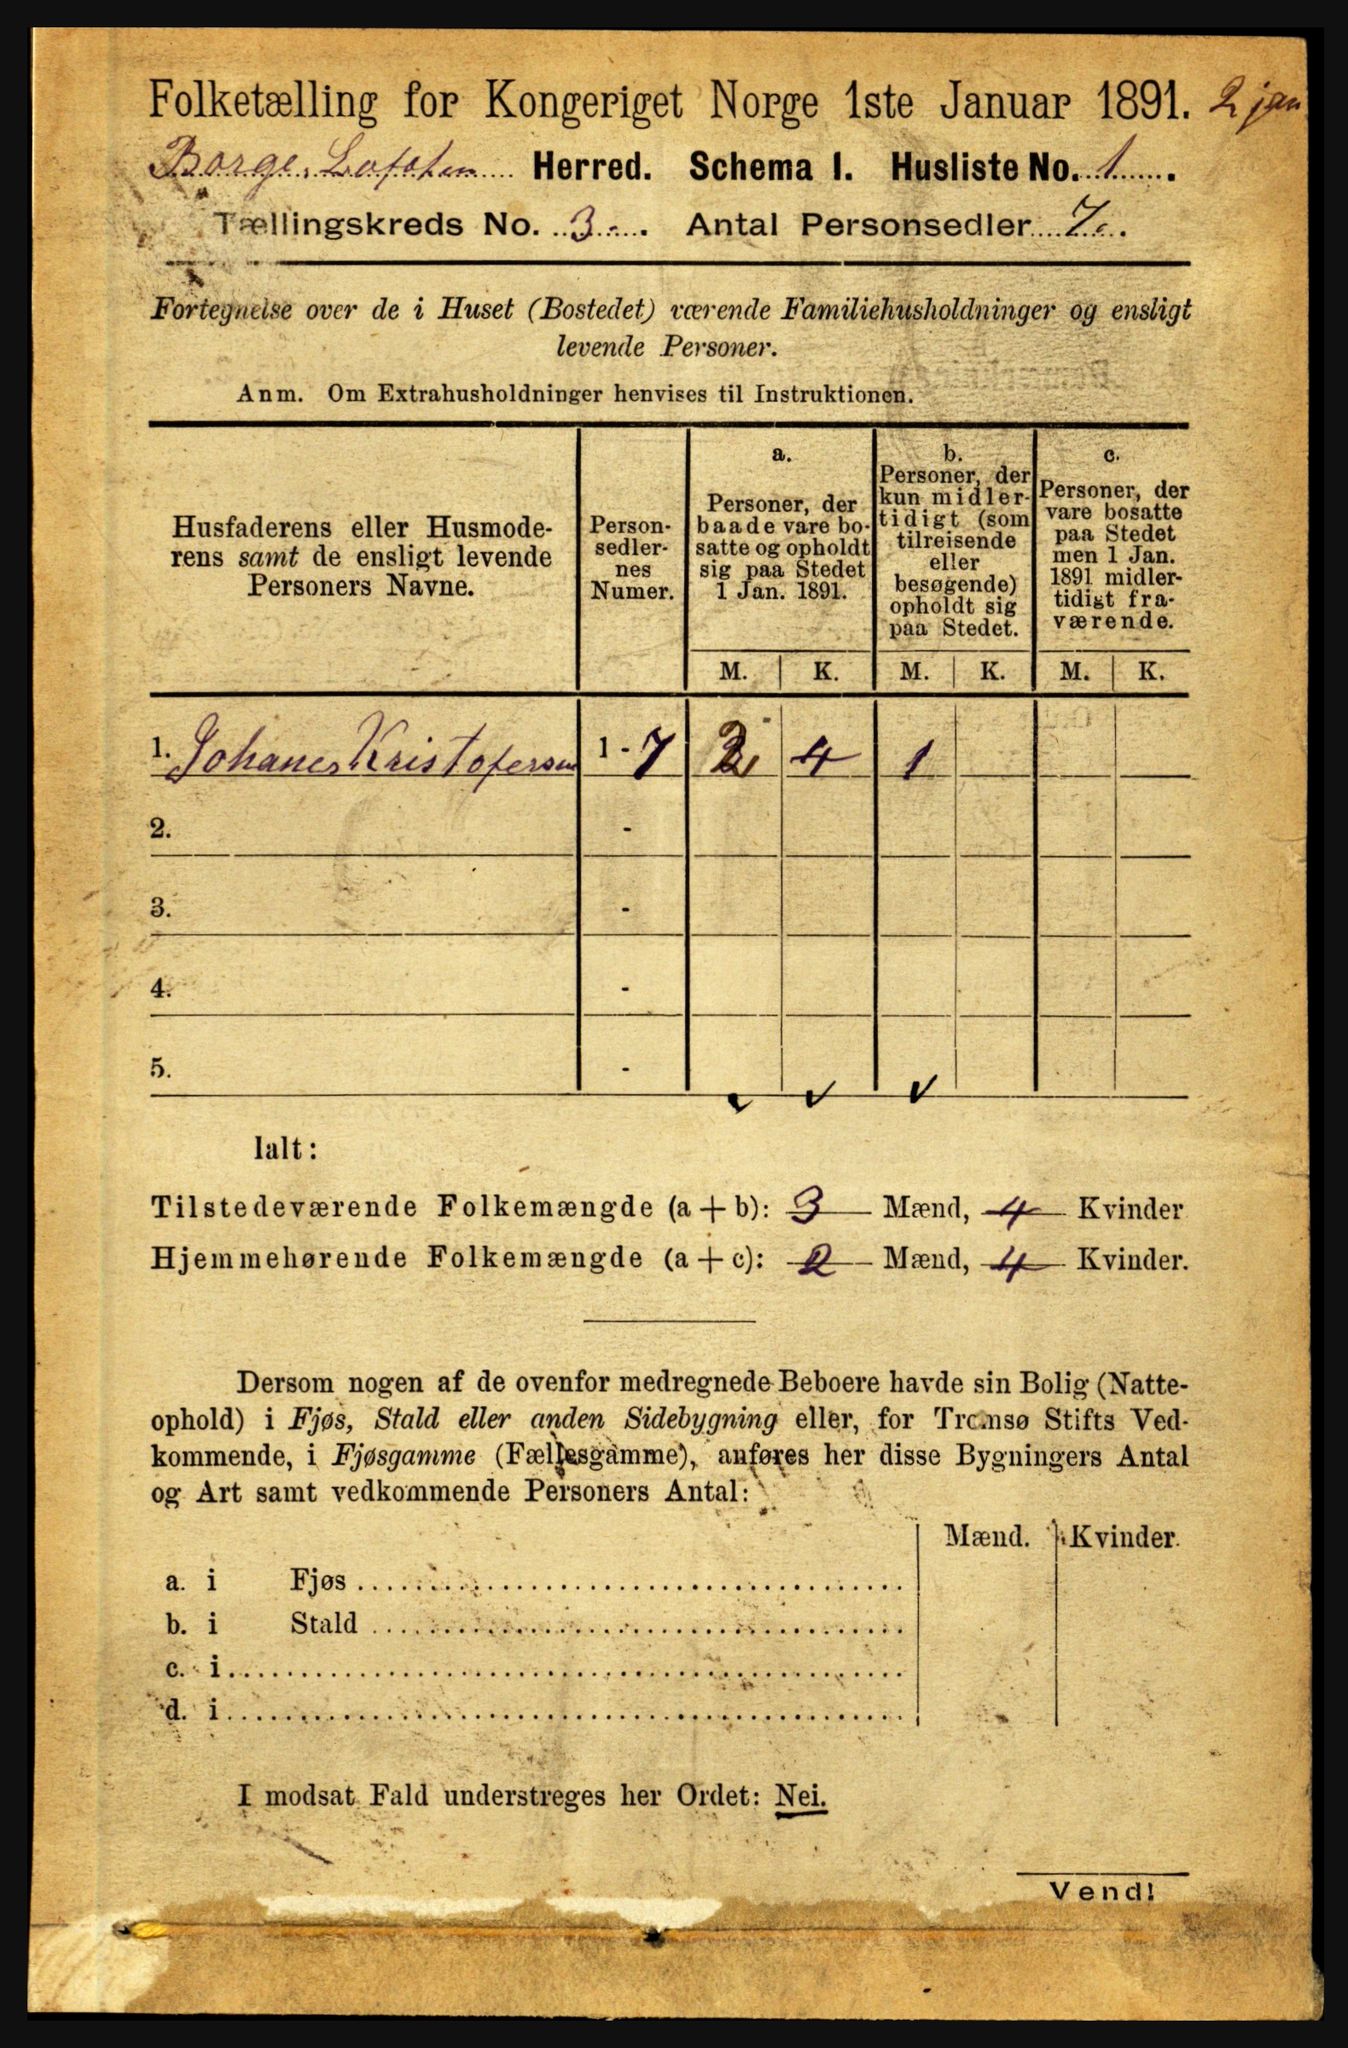 Folketælling for Kongeriget Norge 1ste Januar 1891. 2 jan
Borge, Lofoten Herred. Schema I. Husliste No. 1.
Tællingskreds No. 3. Antal Personsedler 7.
Fortegnelse over de i Huset (Bostedet) værende Familiehusholdninger og ensligt
levende Personer.
Anm. Om Extrahusholdninger henvises til Instruktionen.
Husfaderens eller Husmode-
rens samt de ensligt levende
Personers Navne.
Person-
sedler-
nes
Numer.
a.
Personer, der
baade vare bo-
satte og opholdt
sig paa Stedet
1 Jan. 1891.
b.
Personer, der
kun midler-
tidigt (som
tilreisende
eller
besøgende)
opholdt sig
paa Stedet.
c.
Personer, der
vare bosatte
paa Stedet
men 1 Jan.
1891 midler-
tidigt fra-
værende.
M. K. M. K. M. K.
1. Johanes Kristofersen 1 - 7 2 4 1
2. -
3. -
4. -
5. -
Ialt:
Tilstedeværende Folkemængde (a + b): 3 Mænd, 4 Kvinder
Hjemmehørende Folkemængde (a + c): 2 Mænd, 4 Kvinder.
Dersom nogen af de ovenfor medregnede Beboere havde sin Bolig (Natte-
ophold) i Fjøs, Stald eller anden Sidebygning eller, for Tromsø Stifts Ved-
kommende, i Fjøsgamme (Fællesgamme), anføres her disse Bygningers Antal
og Art samt vedkommende Personers Antal:
Mænd. Kvinder.
a. i Fjøs
b. i Stald
c. i
d. i
I modsat Fald understreges her Ordet: Nei.
Vend!